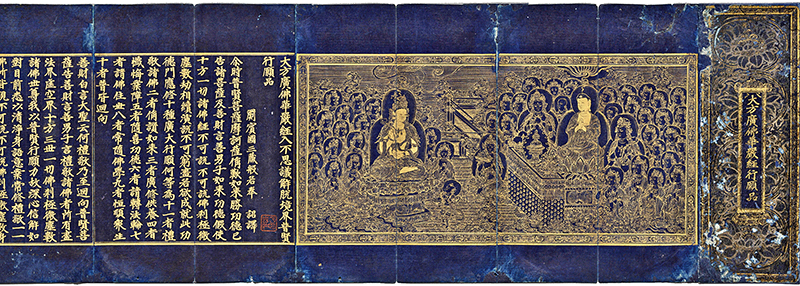 大方廣佛華嚴經行願品
大方廣佛華嚴經入不思議解脫境界普賢
行願品
罽賓國三藏般若奉 詔譯
尒時普賢菩薩摩訶薩稱歎如來勝功德已
告諸菩薩及善財言善男子如來功德假使
十方一切諸佛經不可說不可說佛刹極微
塵數劫相續演說不可窮盡若欲成就此功
德門應修十種廣大行願何等為十一者禮
敬諸佛二者稱讚如來三者廣修供養四者
懺悔業障五者隨喜功德六者請轉法輪七
者請佛住世八者常隨佛學九者恒順衆生
十者普皆迴向
善財白言大聖云何禮敬乃至迴向普賢菩
薩告善財言善男子言禮敬諸佛者所有盡
法界虛空界十方三世一切佛刹極微塵數
諸佛世尊我以普賢行願力故深心信解如
對目前悉以清淨身語意業常修禮敬一一
佛所皆現不可說不可說佛刹極微塵數身